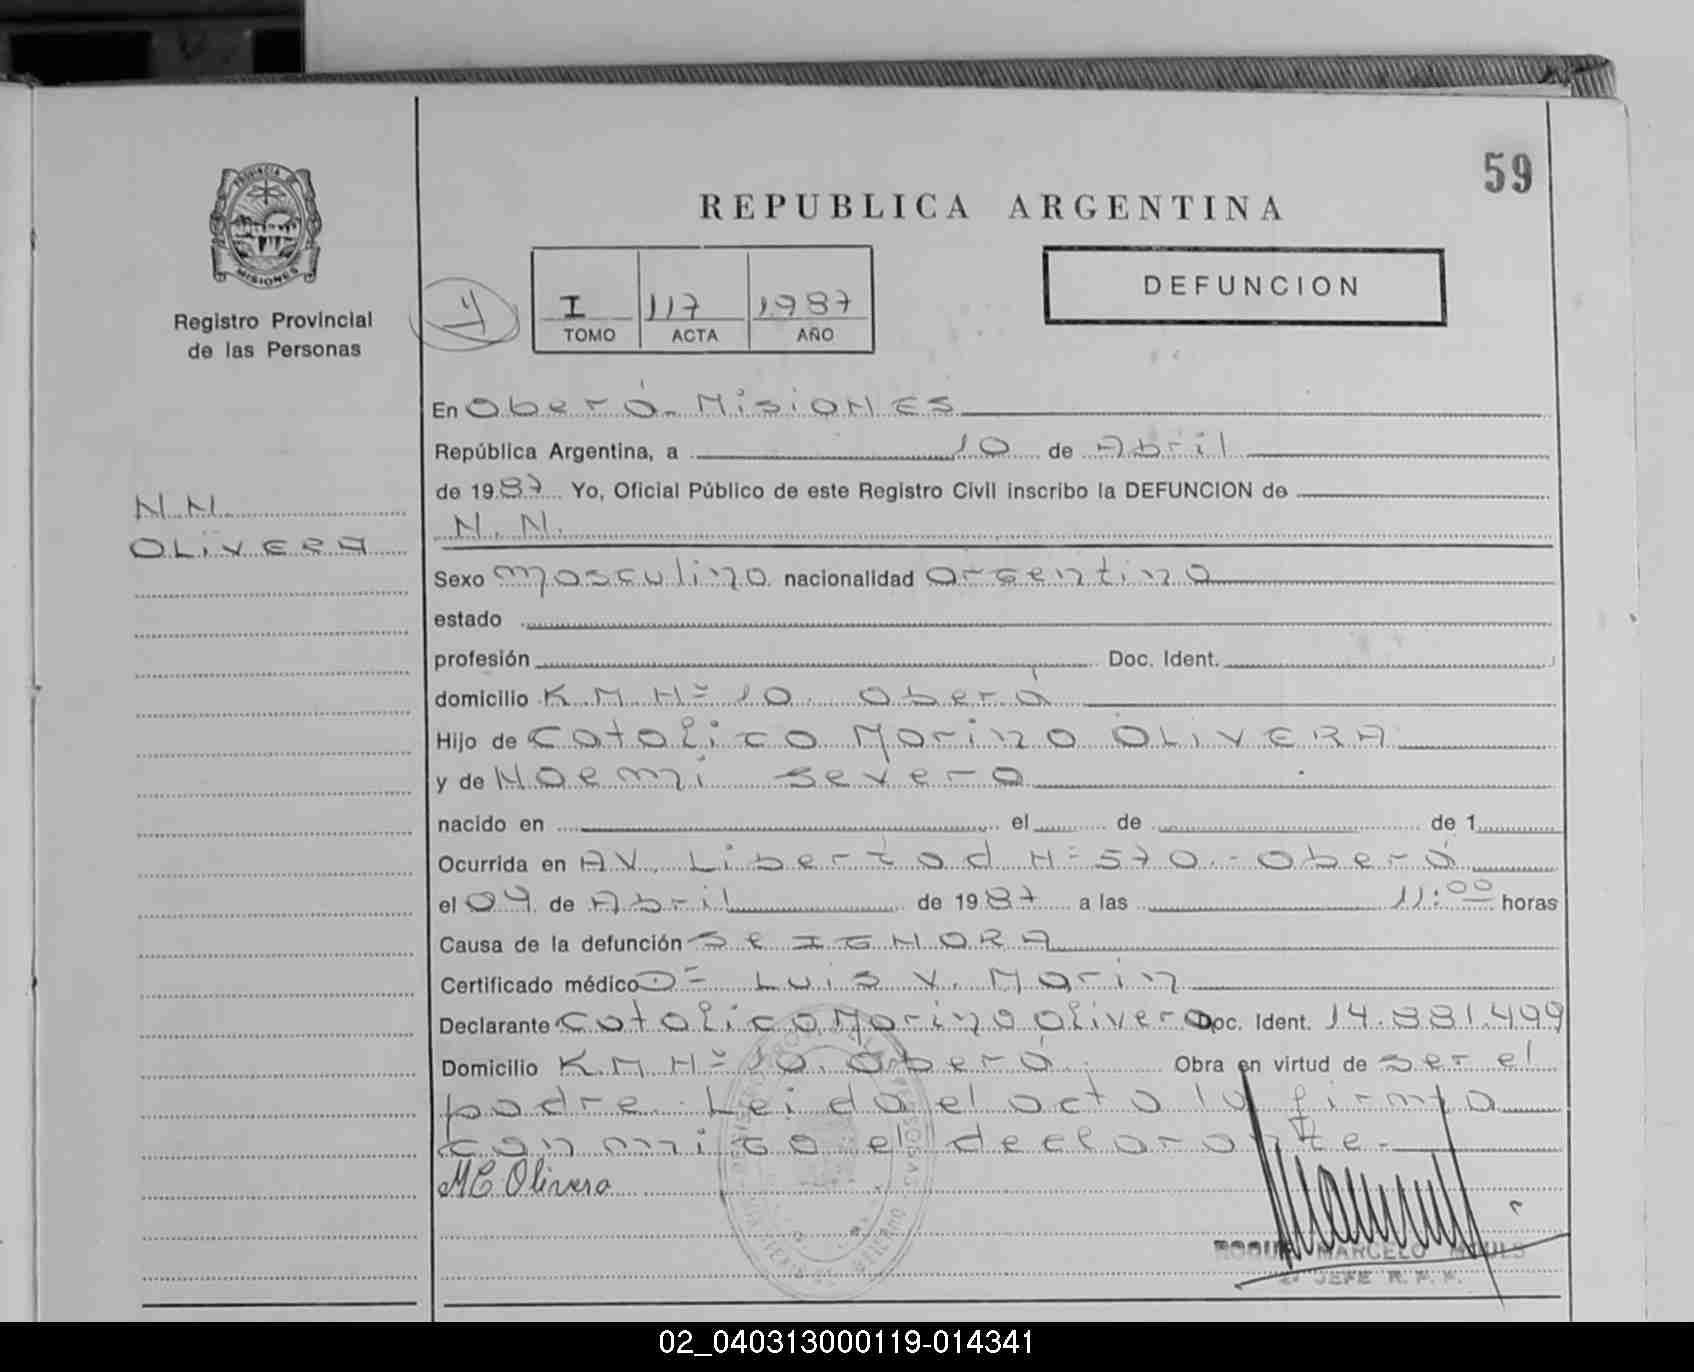 59
PROVINCIA DE
MISIONES
Registro Provincial
de las Personas
REPUBLICA ARGENTINA
DEFUNCION
I 117 1987
TOMO ACTA AÑO
N.N.
OLIVERA
En Oberá - Misiones
República Argentina, a 10 de Abril
de 1987 Yo, Oficial Público de este Registro Civil inscribo la DEFUNCION de
N. N.
Sexo masculino nacionalidad argentina
estado
profesión Doc. Ident.
domicilio K.M. Nº 10. Oberá
Hijo de Catalico Marino OLIVERA
y de Noemi Severo
nacido en el de de 1
Ocurrida en AV. Libertad Nº 570.- Oberá
el 09 de Abril de 1987 a las 11:00 horas
Causa de la defunción SE IGNORA
Certificado médico Dr Luis V. Marin
Declarante Catalico Marino Olivera Doc. Ident. 14.881.499
Domicilio K.M Nº 10. Oberá. Obra en virtud de ser el
padre. Leida el acta la firma
conmigo el declarante.-
MC Olivera
ROQUE MARCELO
JEFE R. P. P.
02_040313000119-014341